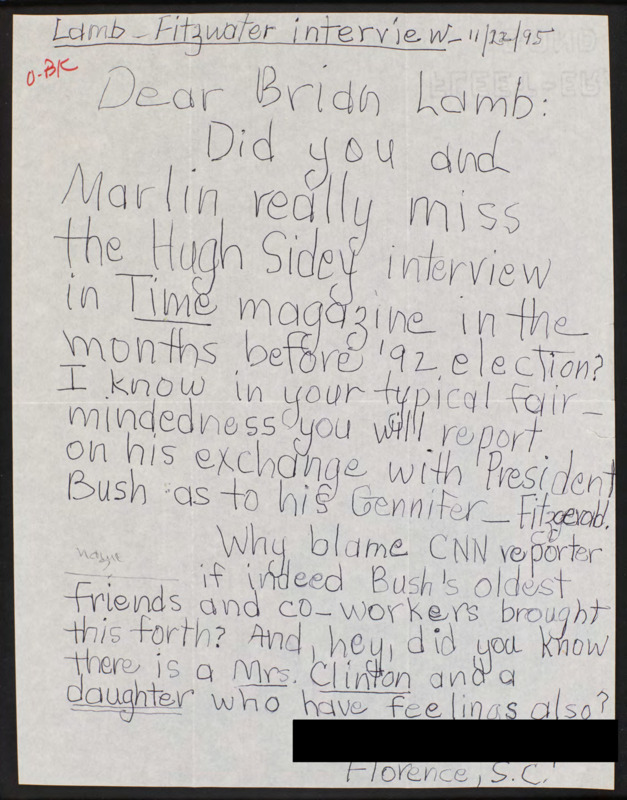 Lamb - Fitzwater interview - 11/22/95
O-BK
Dear Brian Lamb:
Did you and
Marlin really miss
the Hugh Sidey interview
in Time magazine in the
months before '92 election?
I know in your typical fair-
mindedness you will report
on his exchange with President
Bush as to his Gennifer - Fitzgerald.
Why blame CNN reporter
if indeed Bush's oldest
friends and co-workers brought
this forth? And, hey, did you know
there is a Mrs. Clinton and a
daughter who have feelings also?
Florence, S.C.